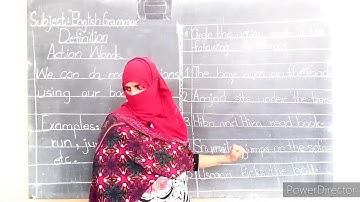 Subject: English Grammar
Definition
Action Words
We can do
using our
Examples:
run, ju
etc.
Circle the action word in the
following
1 The boys runs on the road
2 Amjad sits under the tree
3 Hiba and Hira read book
on the
kicks the ball
PowerDirector